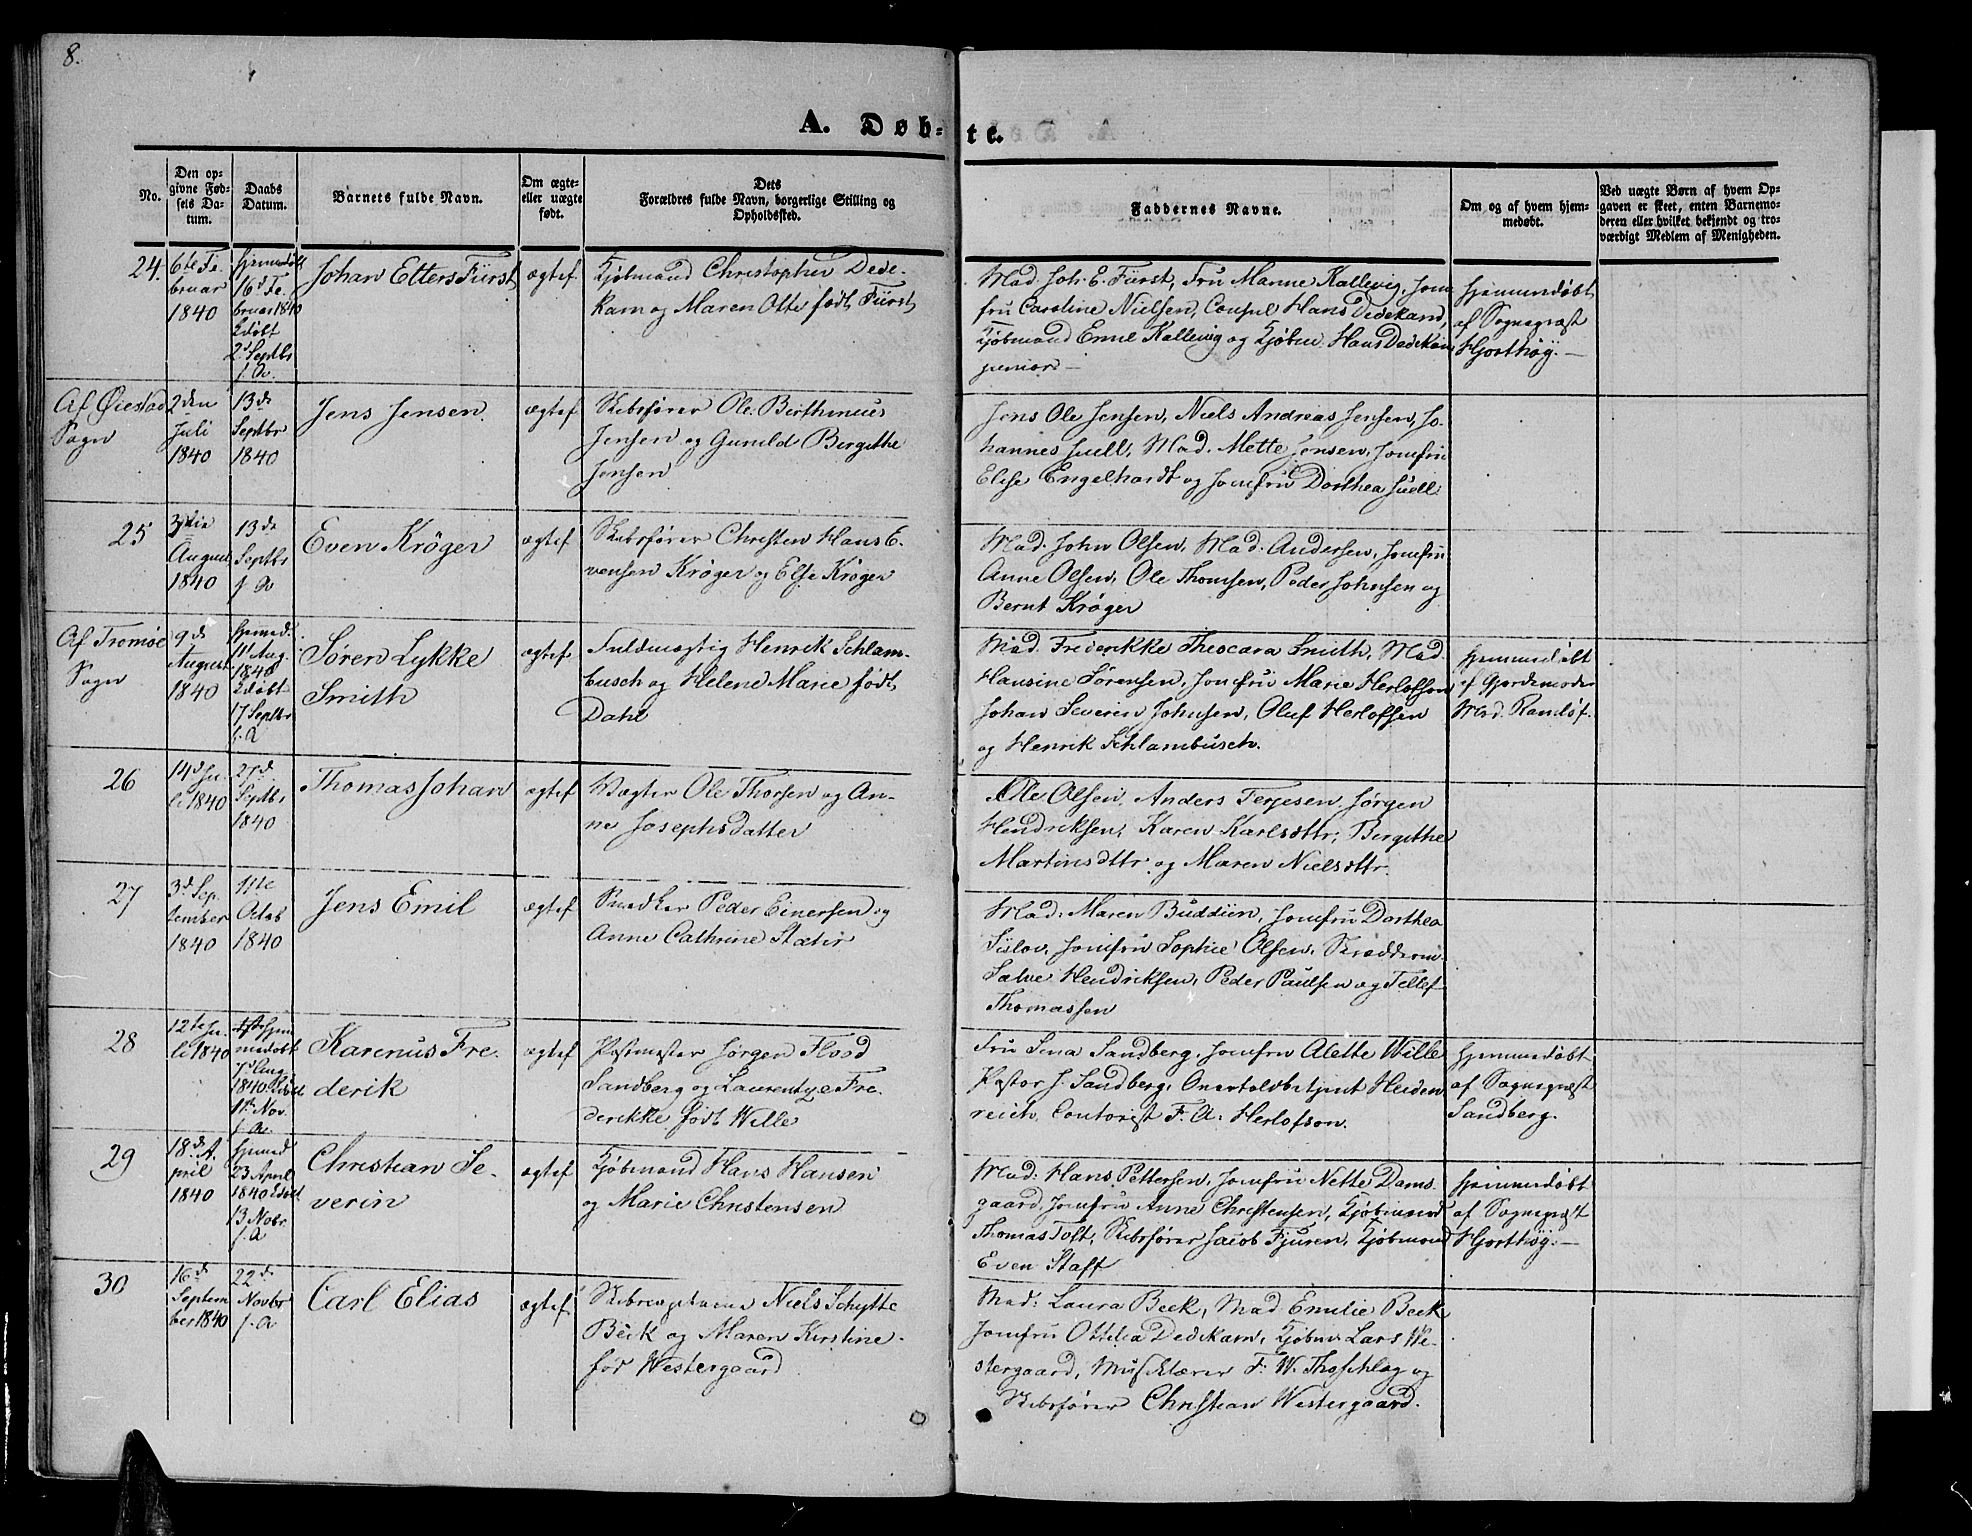 8.
A. Døb-
te.
No.
Den op-
givne Fød-
sels Da-
tum.
Daabs
Datum.
Barnets fulde Navn.
Om ægte-
eller uægte
født.
Dets
Forældres fulde Navn, borgerlige Stilling og
Opholdssted.
Faddernes Navne.
Om og af hvem hjem-
medøbt.
Ved uægte Børn af hvem Op-
gaven er skeet, enten Barnemo-
deren eller hvilket bekjendt og tro-
værdigt Medlem af Menigheden.
24.
6te Fe-
bruar
1840
hjemmedøbt
16d Fe-
bruar 1840
2d Septbr
f. A.
Johan Etters Fürst
ægtef
Kjøbmand Christopher Dede-
kam og Maren Otte født Fürst
Mad. Joh. E. Fürst, Fru Manne Kallevig, Jom-
fru Caroline Nielsen, Consul Hans Dedekam,
Kjøbmand Emil Kallevig og Kjøbm. Hans Dedekam
junior —
hjemmedøbt
af Sognepræst
Hjorthøy. —
Af Øiestad
Sogn
2den
Juli
1840
13de
Septbr
1840
Jens Jensen
ægtef
Skibsfører Ole Birthinius
Jensen og Gunild Bergithe
Jensen
Jens Ole Jensen, Niels Andreas Jensen, Jo-
hannes Juell, Mad. Mette Jensen, Jomfru
Elise Engelhardt og Jomfru Dorthea Juell
25
August
1840
13de
Septbr
f. A
Even Krøger
ægtef
Skibsfører Christen Hans E-
vensen Krøger og Else Krøger
Mad. John Olsen, Mad. Andersen, Jomfru
Anne Olsen, Ole Thomsen, Peder Johnsen og
Bernt Krøger
Af Tromøe
Sogn
9de
August
1840
hjemmed.
11t Aug.
1840
17 Septbr
f. A
Søren Lykke
Smith
ægtef
Fuldmægtig Henrik Schlam-
busch og Helene Marie født
Dahl
Mad. Frederikke Theocara Smith, Mad.
Hansine Sørensen, Jomfru Marie Herlofson
Johan Severin Johnsen, Oluf Herlofsen
og Henrik Schlambusch.
hjemmedøbt
af Gjordemoder
Mad. Randløf.
26
14d Ju-
li 1840
27d
Septbr
1840
Thomas Johan
ægtef
Vægter Ole Thorsen og An-
ne Josephsdatter
Ole Olsen, Anders Terjesen, Jørgen
Hendriksen, Karen Karlsdttr, Bergithe
Martinsdttr og Maren Nielsdttr.
27
3d Sep-
tember
1840
11te
Octob
1840
Jens Emil
ægtef
Snedker Peder Einersen og
Anne Cathrine
Mad. Maren Buddien, Jomfru Dorthea
Sislov, Jomfru Sophie Olsen,
Salve Hendriksen, Peder Paulsen og Tellef
Thomassen
28
12te Ju-
li 1840
hjem-
medøbt
7d Aug.
1840
11t Nov.
f. A.
Karenus Fre-
derik
ægtef
Postmester Jørgen Flood
Sandberg og Laurentze Fre-
derikke født Wille
Fru Sina Sandberg, Jomfru Alette Wille
Pastor J. Sandberg, Overtoldbetjent Heiden-
reich, Contorist F. A. Herlofson.
hjemmedøbt
af Sognepræst
Sandberg.
29
18d A-
pril
1840
hjemmed
23 April
1840
13 Nobr.
f. A
Christian Se-
verin
ægtef
Kjøbmand Hans Hansen
og Marie Christensen
Mad: Hans Pettersen, Jomfru Nette Dams-
gaard, Jomfru Anne Christensen, Kjøbmand
Thomas Toft, Skibsfører Jacob Fjuren, Kjøbmand
Even Staff
hjemmedøbt
af Sognepræst
Hjorthøy. —
30
16d
Septem-
ber 1840
22d
Novbr
f. A
Carl Elias
ægtef.
Niels Schytte
Beck og Maren Kirstine
fød Westergaard
Mad: Laura Beck, Mad Emilie Beck
Jomfru Ottilia Dedekam, Kjøbm. Lars We-
stergaard, F. W. Thoschlag og
Skibsfører Christian Westergaard.